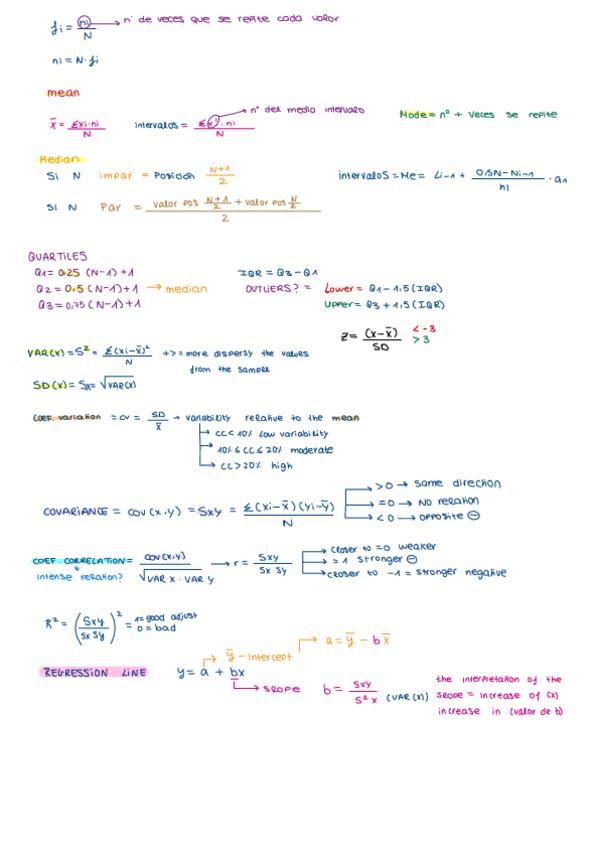 fi = ni / N → nº de veces que se repite cada valor
ni = N · fi
mean
x̄ = Σxi·ni / N intervalos = Σ(x')·ni / N → nº del medio intervalo Mode = nº + veces se repite
Median
Si N impar = Posición N+1 / 2 intervalos = Me = Li-1 + 0.5N - Ni-1 / ni · a1
Si N Par = valor pos N+1 / 2 + valor pos N / 2 / 2
QUARTILES
Q1 = 0.25 (N-1) +1 IQR = Q3 - Q1
Q2 = 0,5 (N-1) +1 → median OUTLIERS? = Lower = Q1 - 1,5 (IQR)
Q3 = 0,75 (N-1) +1 Upper = Q3 + 1,5 (IQR)
Z = (x-x̄) / SD < -3 > 3
VAR(x) = S² = Σ(xi-x̄)² / N +> = more dispersy the values
from the sample
SD(x) = Sx = √VAR(x)
COEF variation = CV = SD / x̄ → variability relative to the mean
→ CC < 10% low variability
→ 10% ≤ CC ≤ 20% moderate
→ CC > 20% high
COVARIANCE = COV(x,y) = Sxy = Σ(xi-x̄)(yi-ȳ) / N
> 0 → same direction
= 0 → NO relation
< 0 → opposite ⊖
COEF CORRELATION = COV(x,y) / √VAR x · VAR y → r = Sxy / Sx Sy
intense relation?
closer to = 0 weaker
= 1 stronger ⊖
closer to -1 = stronger negative
R² = (Sxy / Sx Sy)² = 1 = good adjust
0 = bad
REGRESSION LINE y = a + bx
ȳ - intercept → a = ȳ - bx̄
→ slope b = Sxy / S²x (VAR(x))
the interpretation of the
slope = increase of (x)
increase in (valor de b)